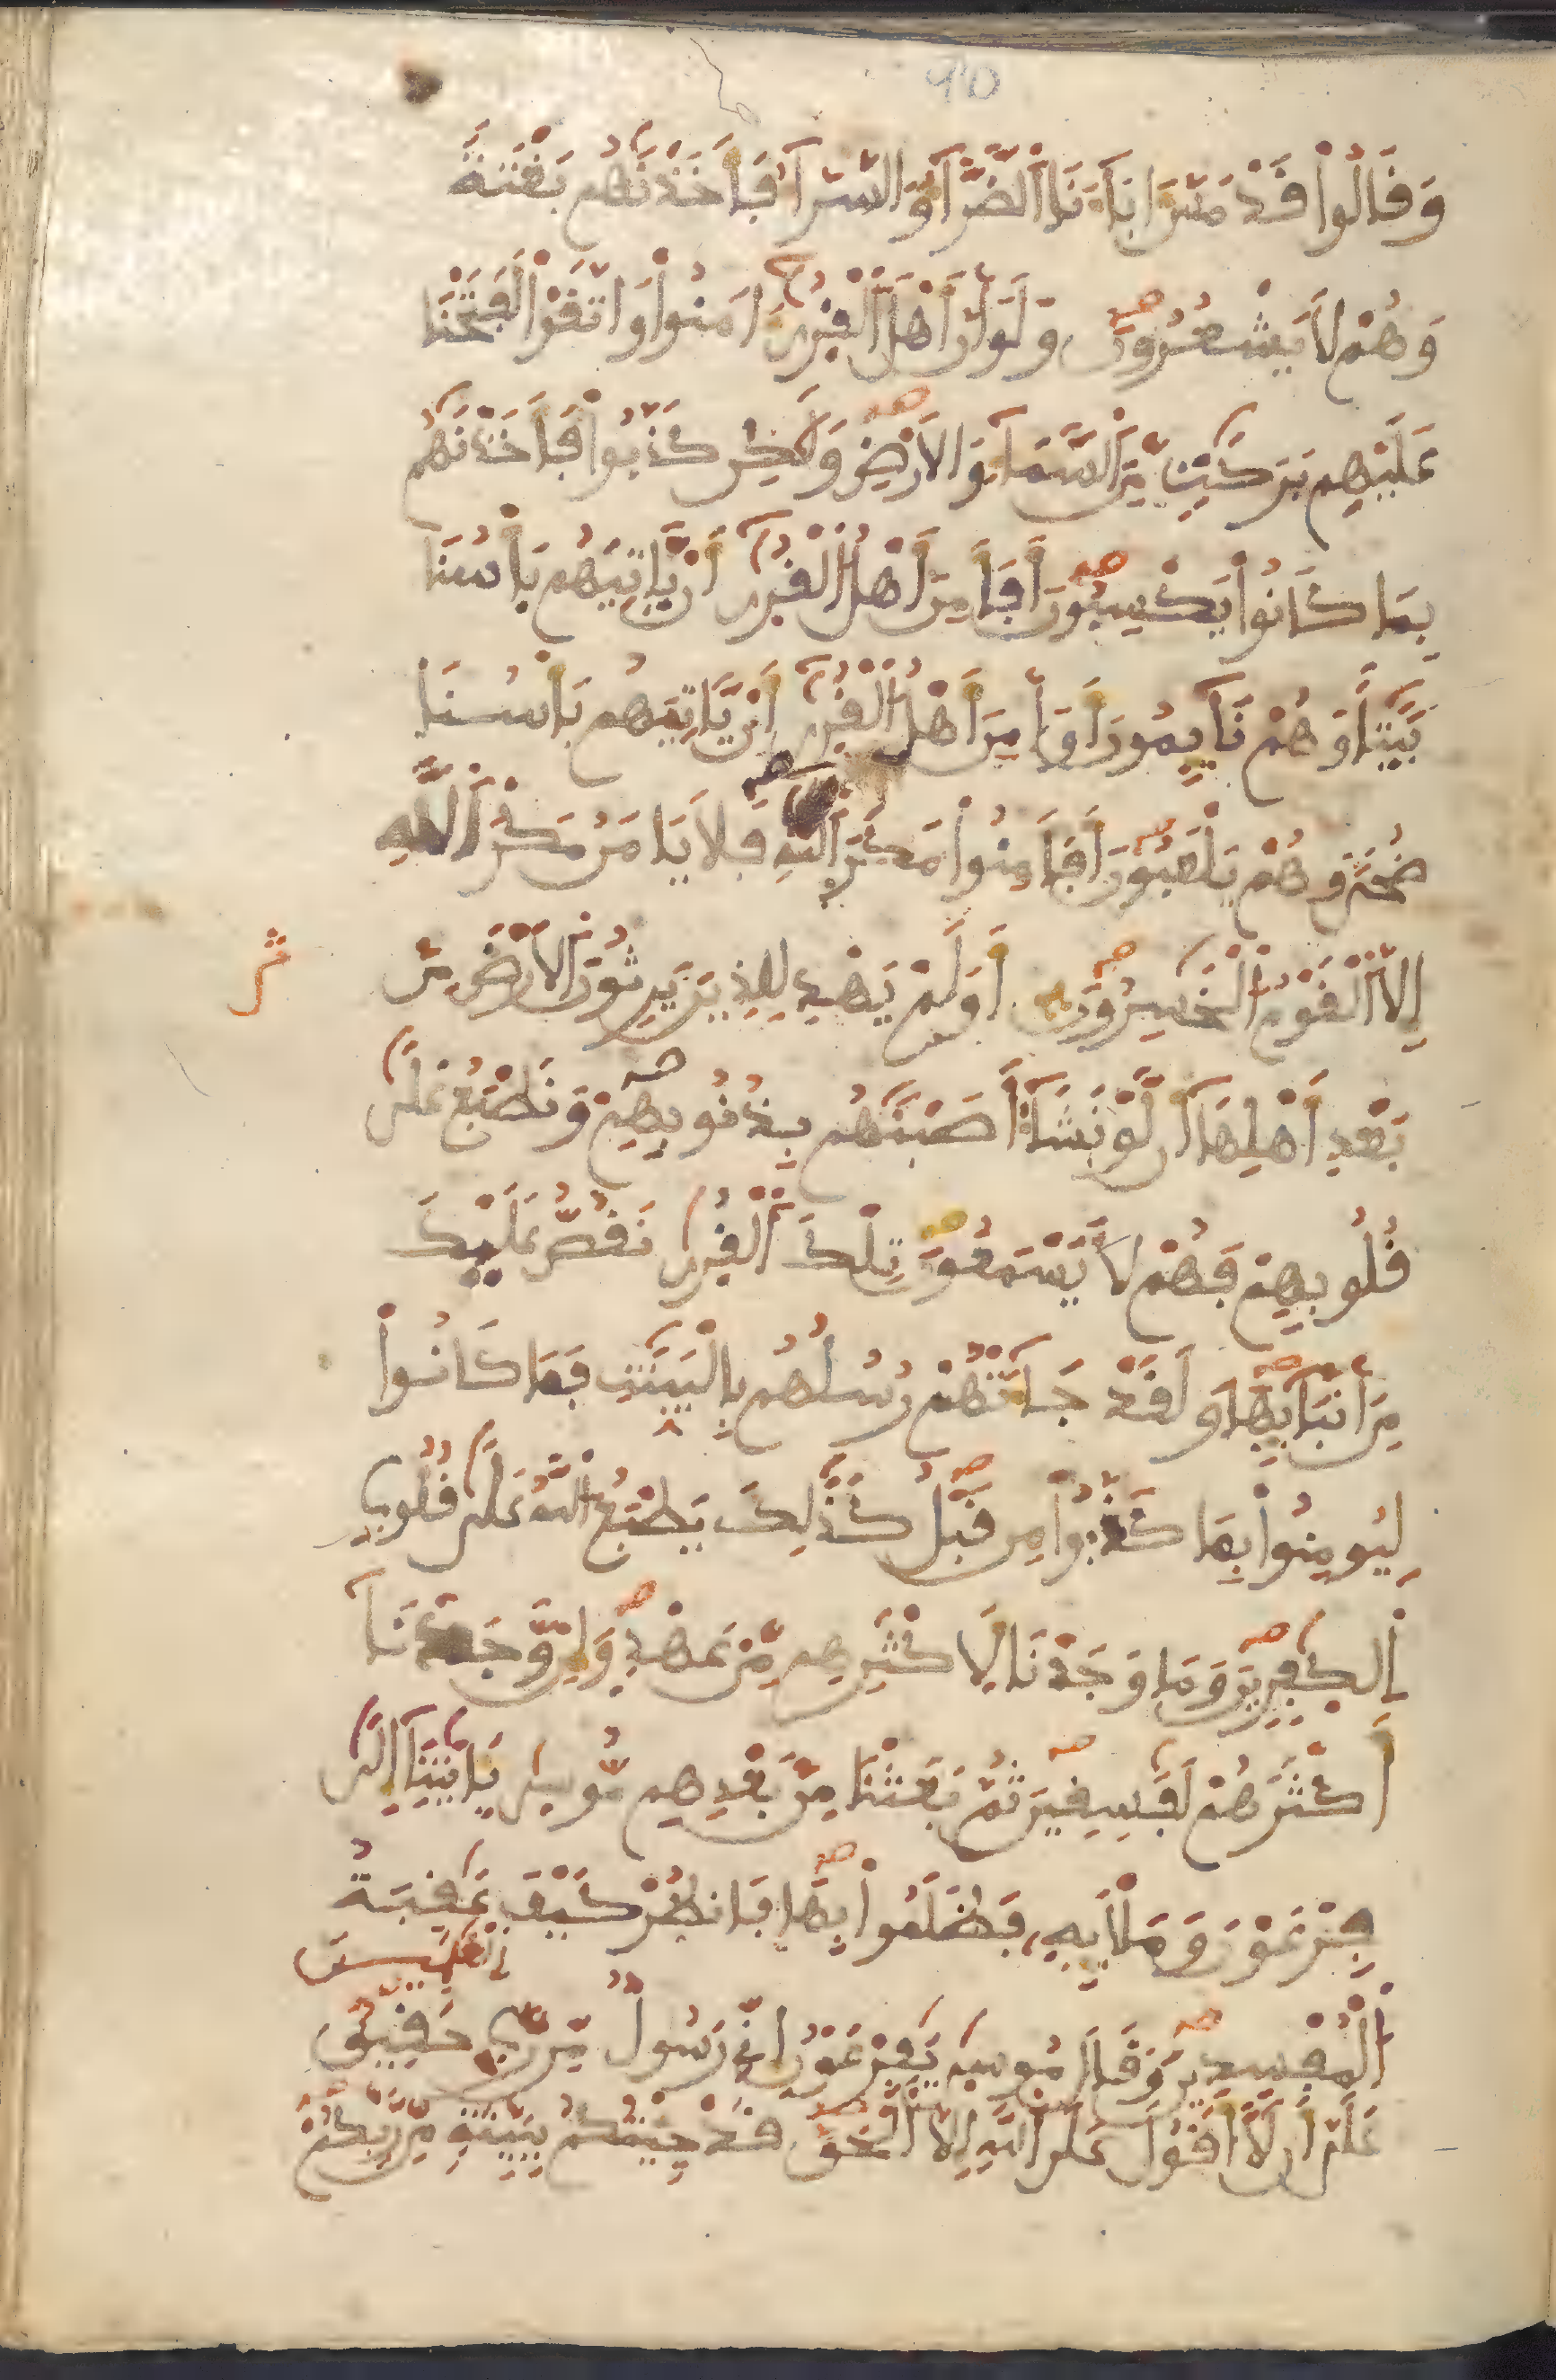 وَقَالُواْ قَدْ مَسَّ ءَابَآءَنَا اَ۬لضَّرَّآءُ وَالسَّرَّآءُ فَأَخَذْنَٰهُم بَغْتَةً
وَهُمْ لَا يَشْعُرُونَ وَلَوَ اَنَّ أَهْلَ اَ۬لْقُر۪يٰٓ ءَامَنُواْ وَاتَّقَوْاْ لَفَتَحْنَا
عَلَيْهِم بَرَكَٰتٖ مِّنَ اَ۬لسَّمَآءِ وَالَارْضِ وَلَٰكِن كَذَّبُواْ فَأَخَذْنَٰهُم
بِمَا كَانُواْ يَكْسِبُونَ أَفَأَمِنَ أَهْلُ اُ۬لْقُر۪يٰٓ أَنْ يَّاتِيَهُم بَأْسُنَا
بَيَٰتاٗ وَهُمْ نَآيِمُونَ أَوَ اَمِنَ أَهْلُ اُ۬لْقُر۪يٰٓ أَنْ يَّاتِيَهُم بَأْسُنَا
ضُحيٗ وَهُمْ يَلْعَبُونَ أَفَأَمِنُواْ مَكْرَ اَ۬للَّهِ فَلَا يَامَنُ مَكْرَ اَ۬للَّهِ
إِلَّا اَ۬لْقَوْمُ اُ۬لْخَٰسِرُونَ أَوَلَمْ يَهْدِ لِلذِينَ يَرِثُونَ اَ۬لَارْضَ مِنۢ
بَعْدِ أَهْلِهَآ أَن لَّوْ نَشَآءُ اَصَبْنَٰهُم بِذُنُوبِهِمْ وَنَطْبَعُ عَلَيٰ
قُلُوبِهِمْ فَهُمْ لَا يَسْمَعُونَ تِلْكَ اَ۬لْقُر۪يٰ نَقُصُّ عَلَيْكَ
مِنَ اَنۢبَآئِهَا وَلَقَدْ جَآءَتْهُمْ رُسُلُهُم بِالْبَيِّنَٰتِ فَمَا كَانُواْ
لِيُومِنُواْ بِمَا كَذَّبُواْ مِن قَبْلُ كَذَٰلِكَ يَطْبَعُ اُ۬للَّهُ عَلَيٰ قُلُوبِ
اِ۬لْكٰ۪فِرِينَ وَمَا وَجَدْنَا لِأَكْثَرِهِم مِّنْ عَهْدٖ وَإِنْ وَّجَدْنَآ
أَكْثَرَهُمْ لَفَٰسِقِينَ ثُمَّ بَعَثْنَا مِنۢ بَعْدِهِم مُّوس۪يٰ بِـَٔايَٰتِنَآ إِلَيٰ
فِرْعَوْنَ وَمَلَإِيْهِۦ فَظَلَمُواْ بِهَا فَانظُرْ كَيْفَ كَانَ عَٰقِبَةُ
اُ۬لْمُفْسِدِينَ وَقَالَ مُوس۪يٰ يَٰفِرْعَوْنُ إِنِّے رَسُولٞ مِّن رَّبِّ اِ۬لْعَٰلَمِينَ حَقِيقٌ
عَلَيَّ أَن لَّآ أَقُولَ عَلَي اَ۬للَّهِ إِلَّا اَ۬لْحَقَّ قَدْ جِئْتُكُم بِبَيِّنَةٖ مِّن رَّبِّكُمْ